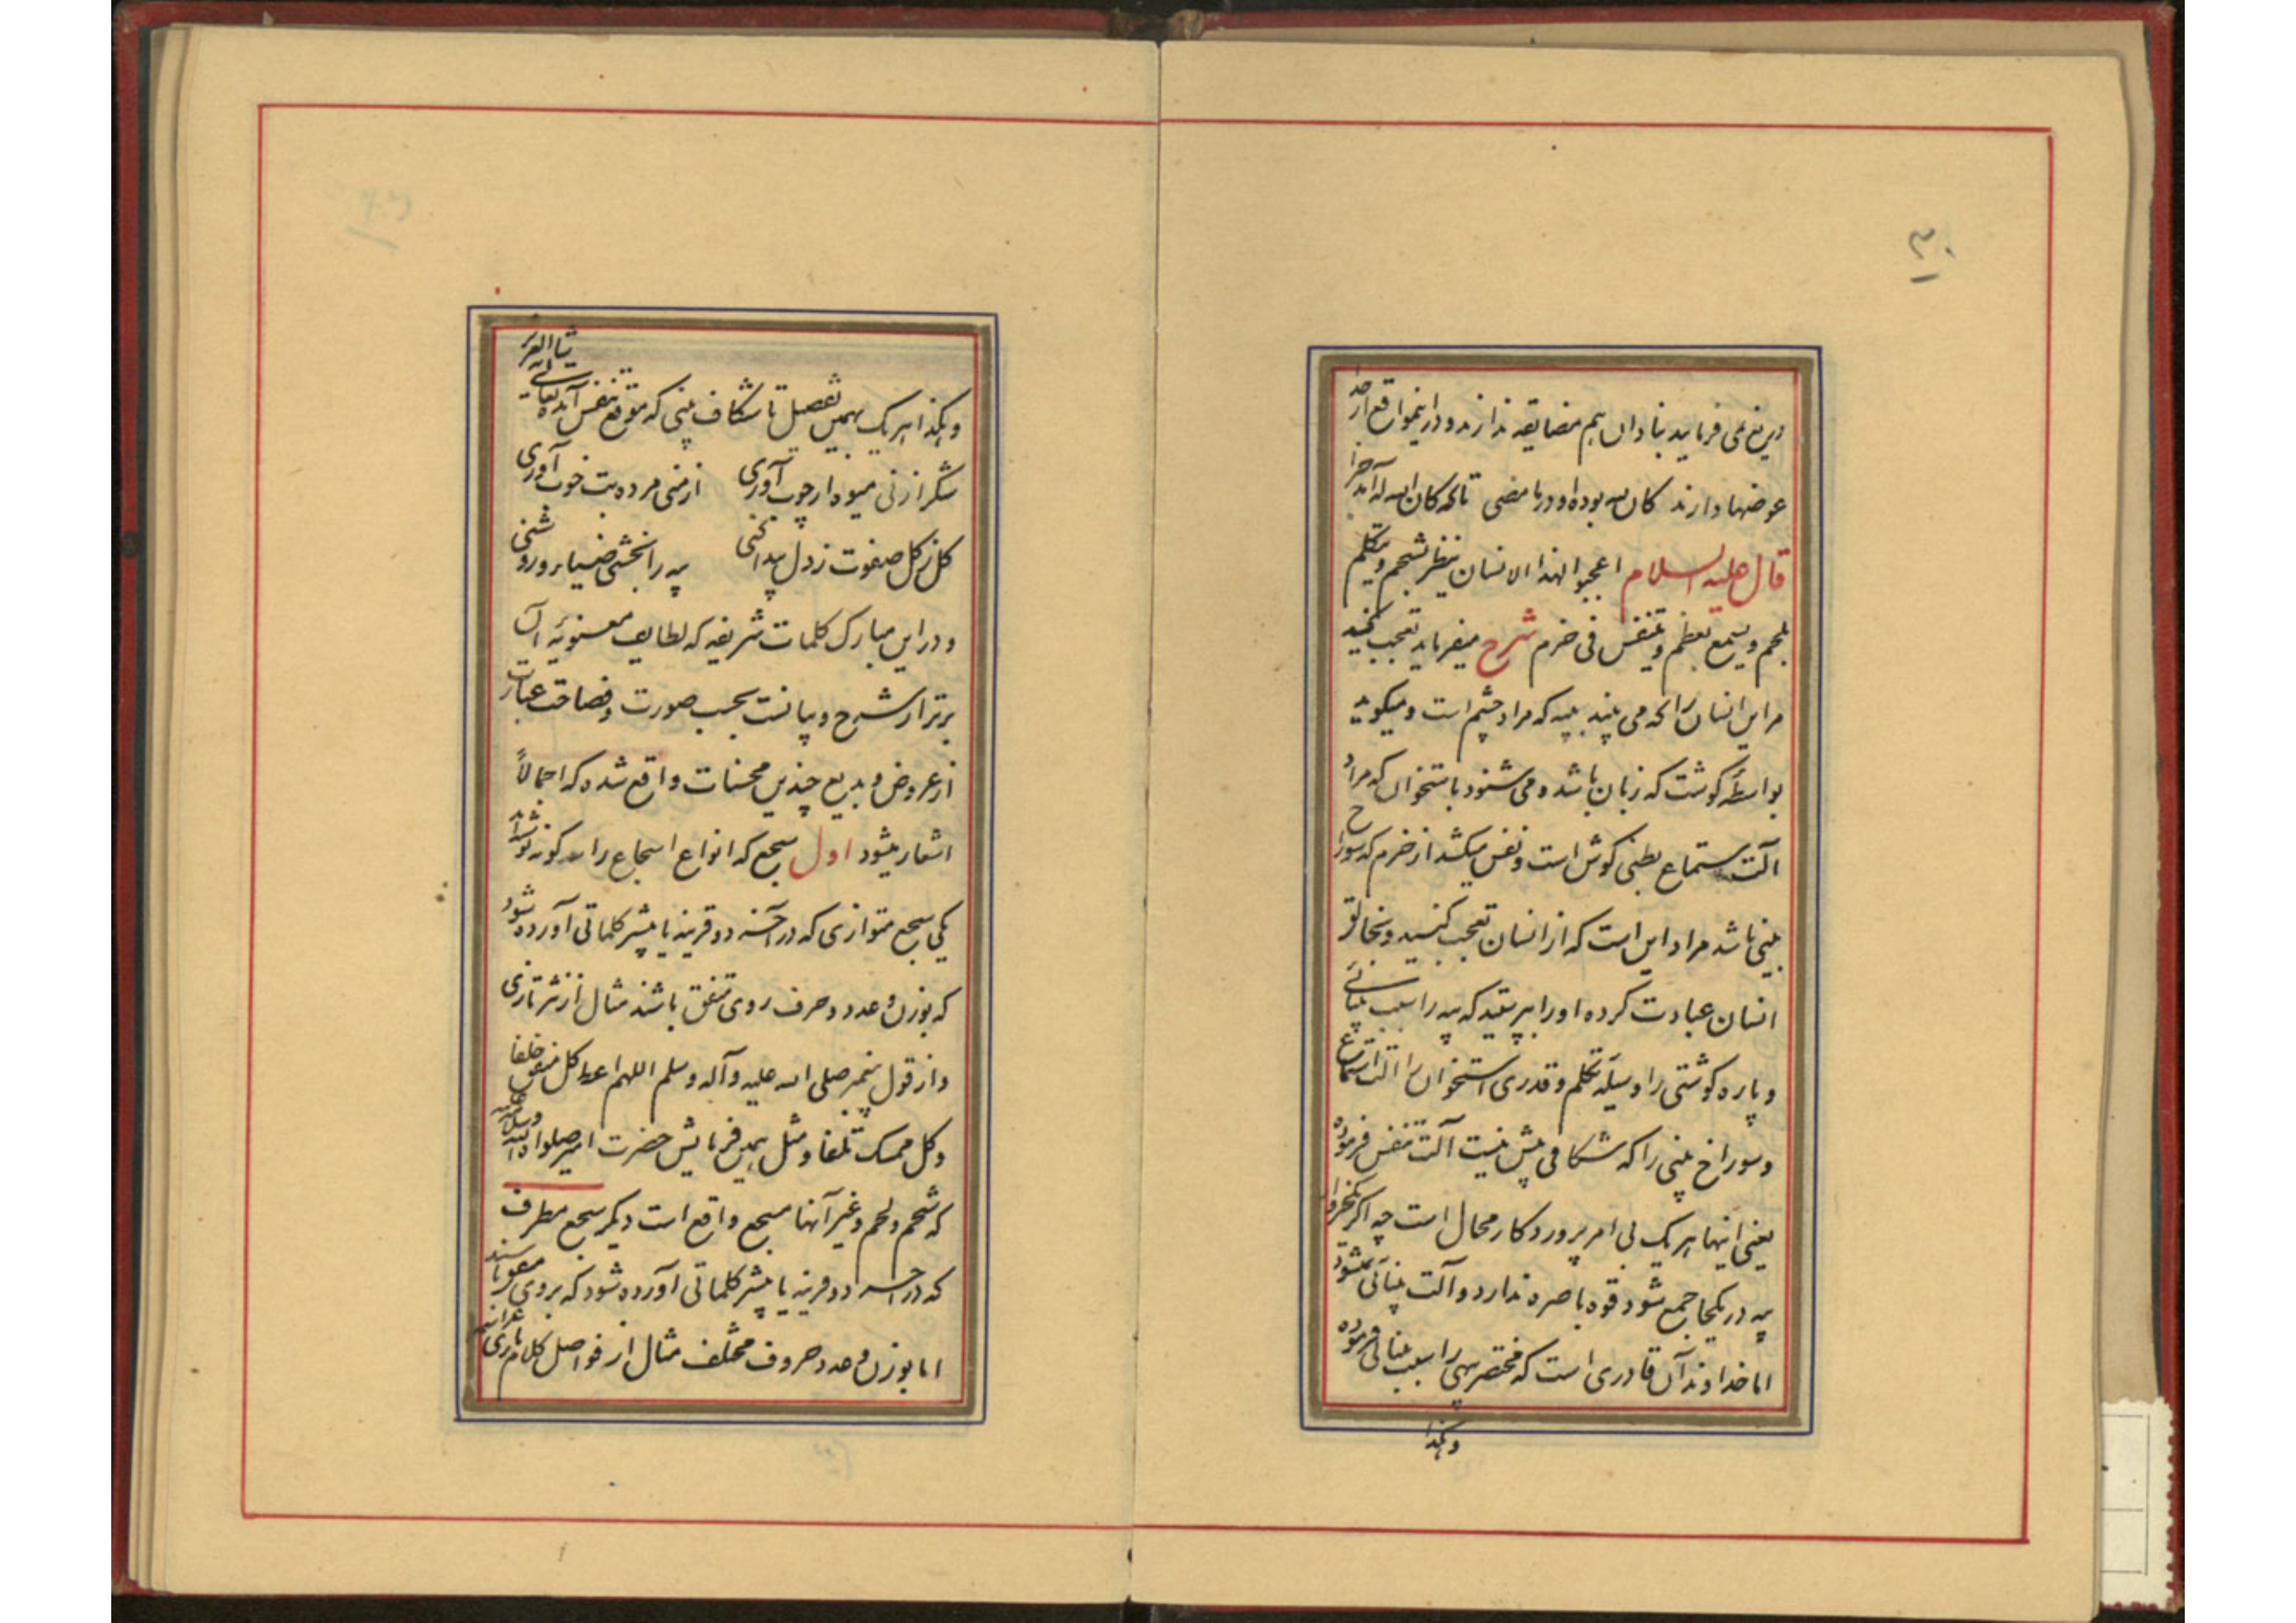 ۳۰
دریغ نمی فرماید بنادان هم مضایقه ندارند و در اینمواقع از خدا
عوضها دارند کان لله بوده او در ما مضی تا که کان الله له آمد جزا
قال علیه السلام اعجبوا لهذا الانسان ینظر بشحم و یتکلم
بلحم و یسمع بعظم و یتنفس فی خرم شرح میفرماید تعجب کنید
مر این انسان را که می بیند به پیه که مراد چشم است و میکوید
بواسطهٔ کوشت که زبان باشد و می شنود باستخوان که مراد
آلت استماع یعنی کوش است و نفس میکشد از خرم که سوراخ
بینی باشد مراد این است که از انسان تعجب کنید و بخالق
انسان عبادت کرده او را بپرستید که پیه را سبب بینائی
و پاره کوشتی را وسیلهٔ تکلم و قدری استخوان را آلت استماع
و سوراخ بینی را که شکافی بیش نیست آلت تنفس فرموده
یعنی اینها هر یک بی امر پروردکار محال است چه اکر یکخروار
پیه در یکجا جمع شود قوه باصره ندارد و آلت بینائی نمیشود
اما خداوند آن قادری است که مختصر پیهی را سبب بینائی فرموده
و هکذا
و هکذا هر یک بهمین تفصیل تا شکاف بینی که موقع تنفس آمده تعالی شانه العزیز
شکر از نی میوه از چوب آوری از منی مرده بت خوب آوری
کل ز کل صفوت ز دل پیدا کنی پیه را بخشی ضیا و روشنی
و در این مبارک کلمات شریفه که لطایف معنویهٔ آن
برتر از شرح و بیانست بحسب صورت و فصاحت عبارت
از عروض و بدیع چندین محسنات واقع شده که اجمالاً
اشعار میشود اول سجع که انواع اسجاع را سه کونه نوشته اند
یکی سجع متوازی که در آخر دو قرینه یا بیشتر کلماتی آورده شود
که بوزن و عدد و حرف روی متفق باشند مثال از نثر تازی
و از قول پیغمبر صلی الله علیه و آله و سلم اللهم اعط کل منفق خلفا
و کل ممسک تلفا و مثل همین فرمایش حضرت امیر صلوات الله و سلامه علیه
که شحم و لحم و غیر آنها مسجع واقع است دیکر سجع مطرف
که در آخر دو قرینه یا بیشتر کلماتی آورده شود که بروی متفق باشند
اما بوزن و عدد حروف مختلف مثال از فواصل کلام باری عز اسمه